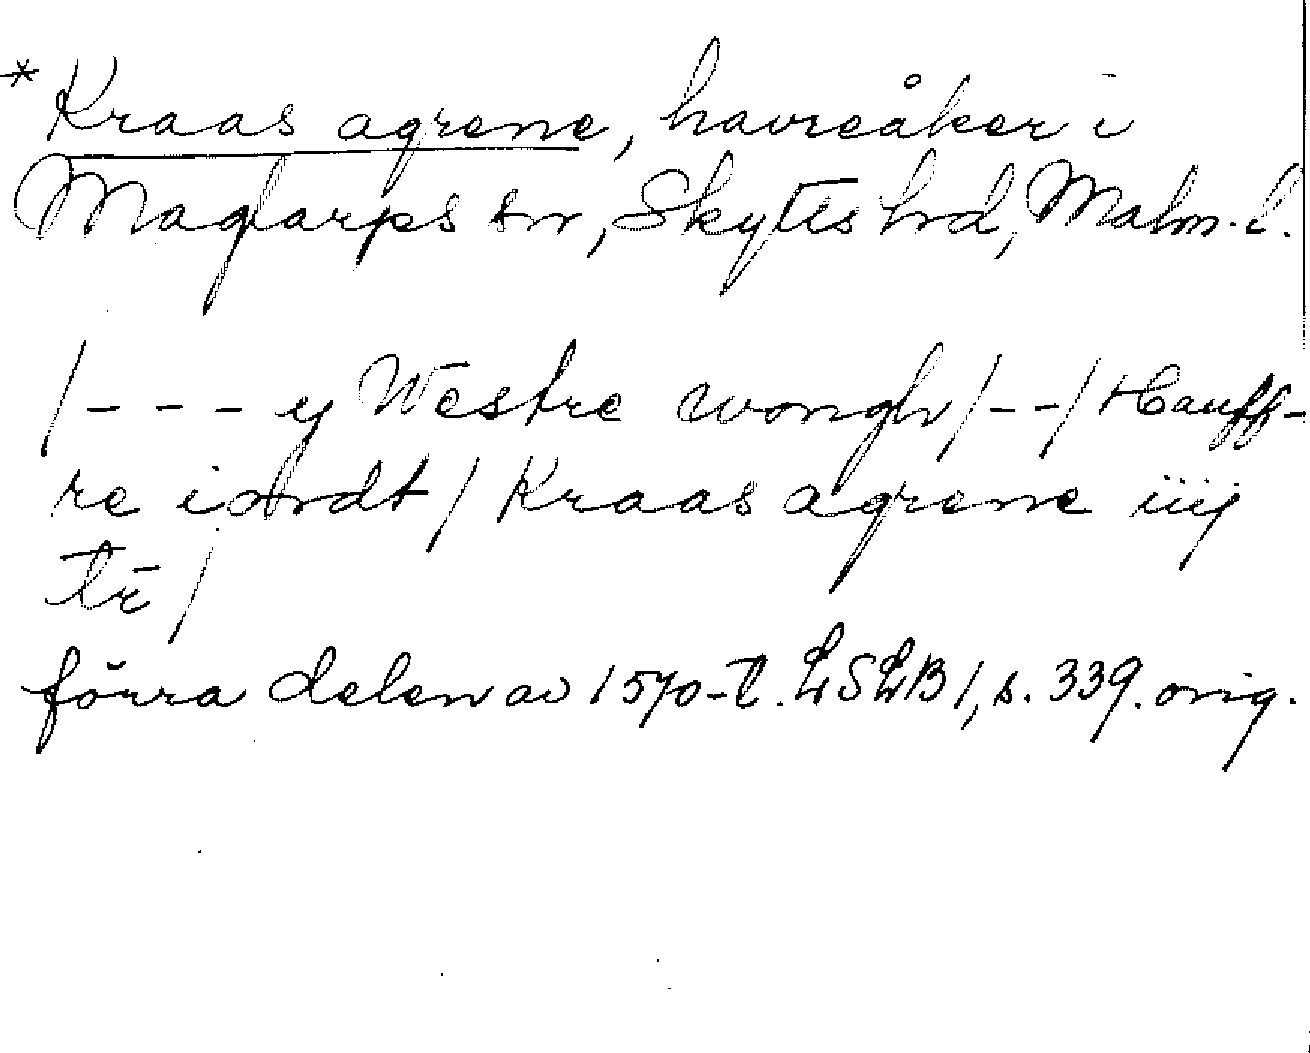 * Kraas agrene, havreåker i
Maglarps sn, Skytts hd, Malm. l.
/- - - y Westre wongh/--/Hauff-
re iordt/Kraas agrene iiij
tr̄/
förra delen av 1570-t. LSLB 1, s. 339. orig.